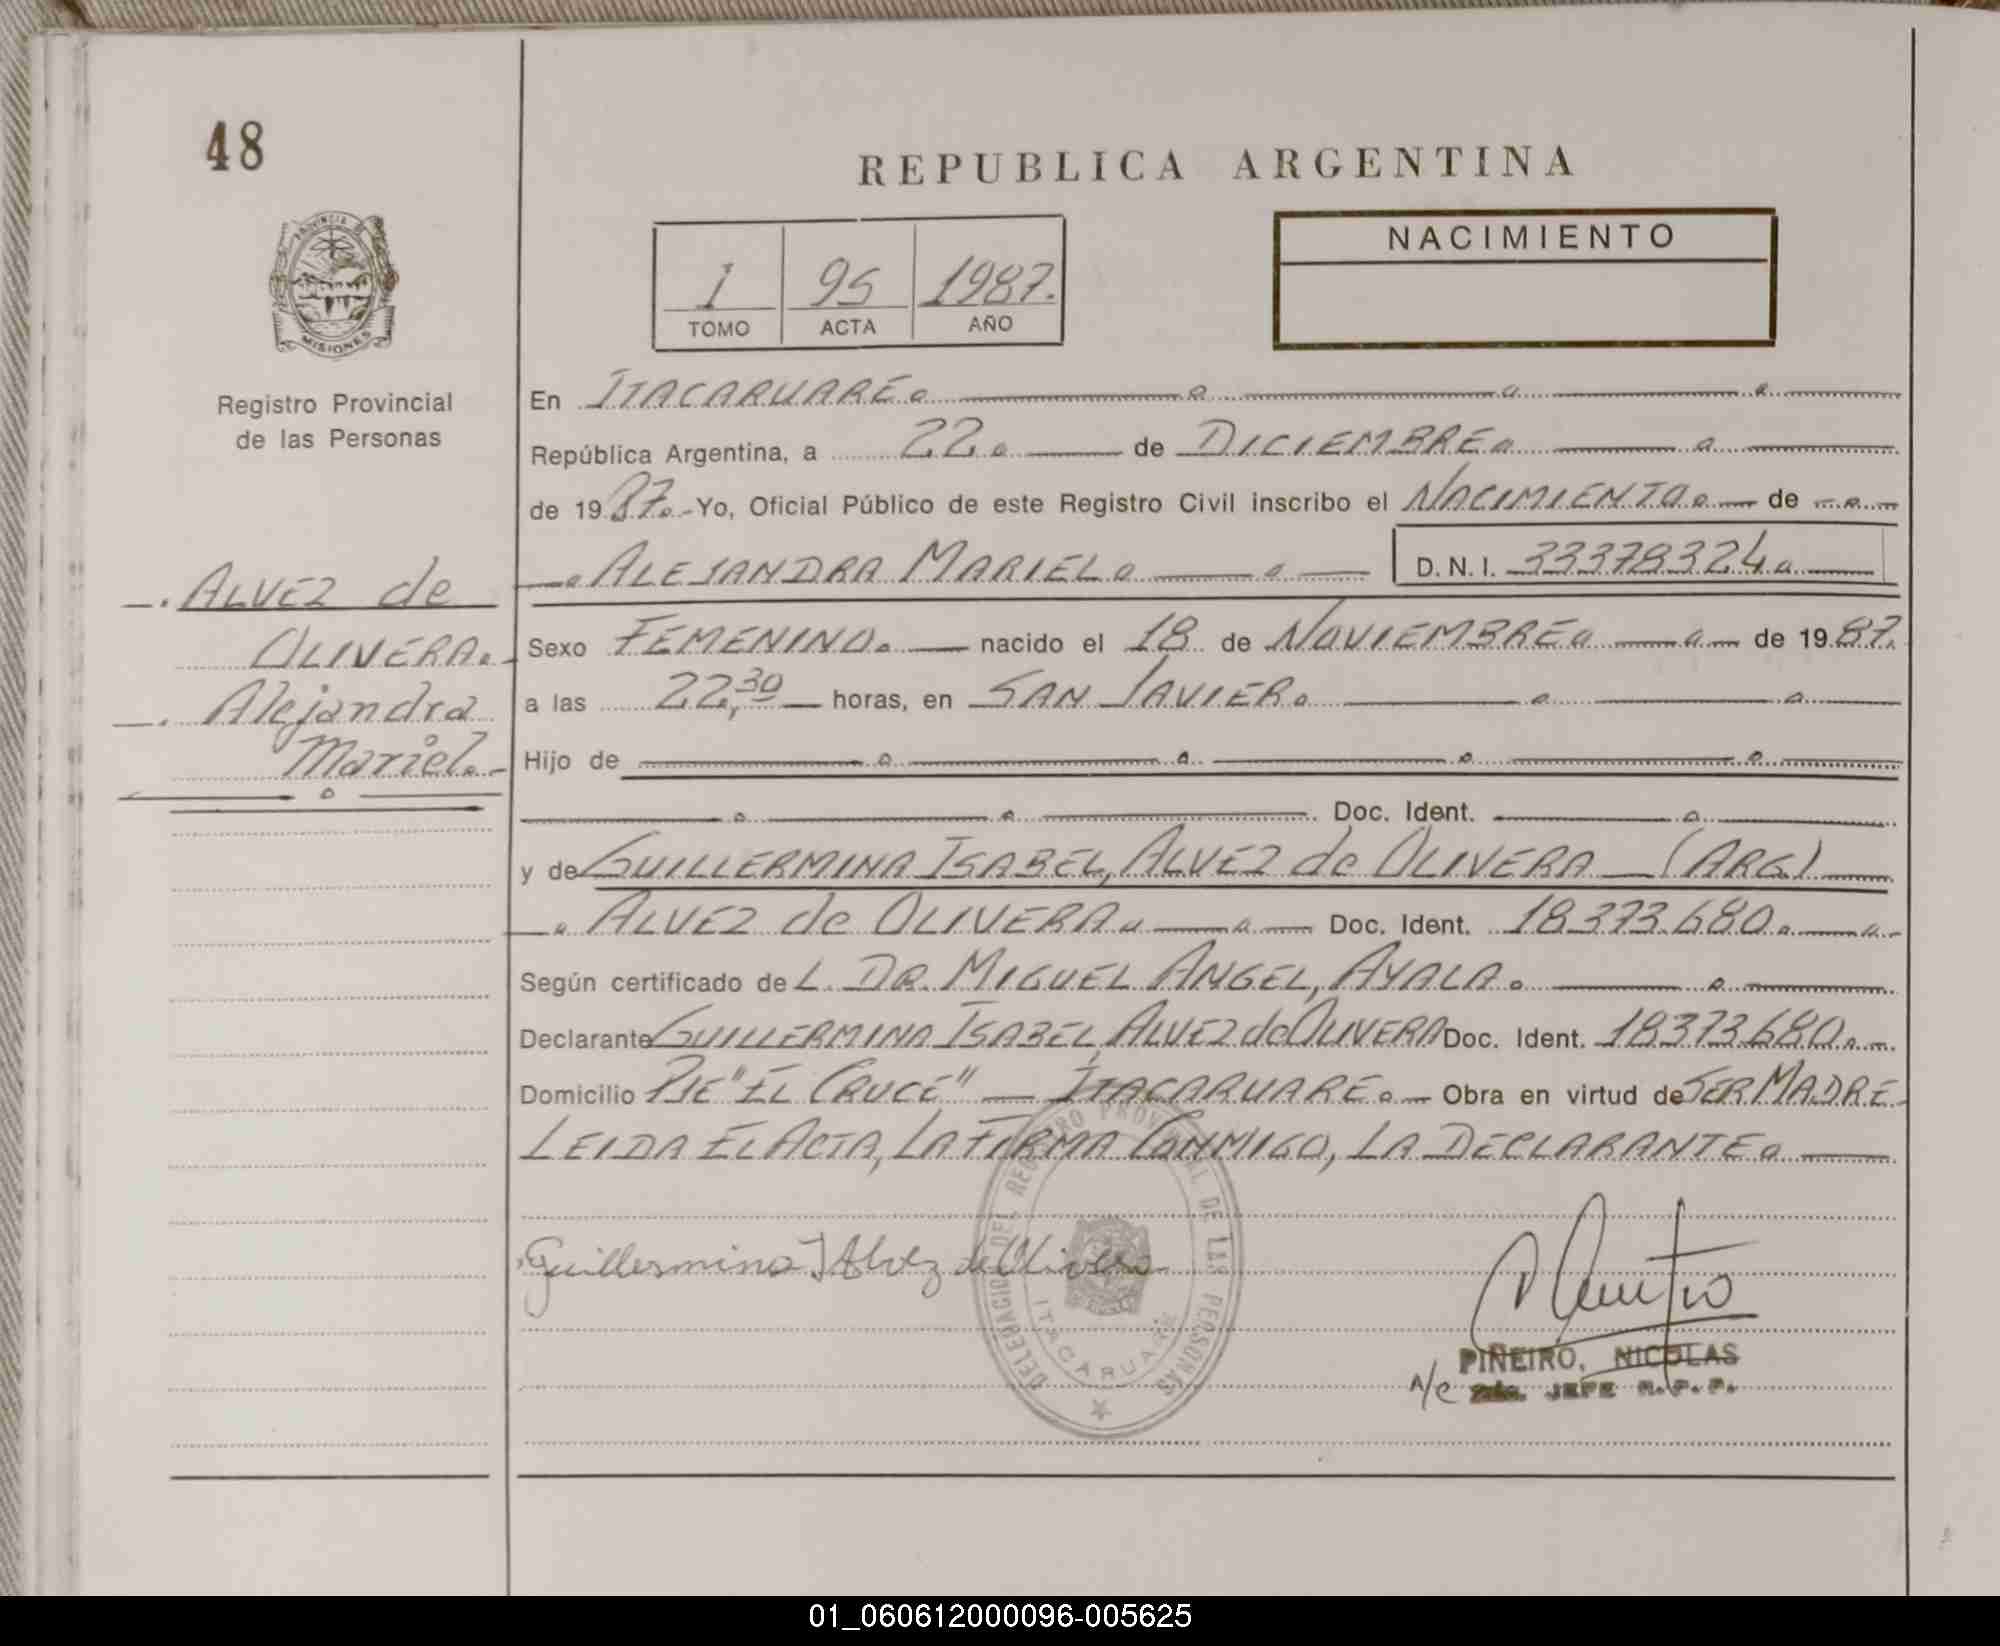 48
REPUBLICA ARGENTINA
PROVINCIA DE
MISIONES
1 95 1987.
TOMO ACTA AÑO
NACIMIENTO
Registro Provincial
de las Personas
ALVEZ de
OLIVERA.
Alejandra
Mariel.
En ITACARUARE
República Argentina, a 22 de DICIEMBRE
de 1987.- Yo, Oficial Público de este Registro Civil inscribo el NACIMIENTO de
ALEJANDRA MARIEL D.N.I. 33378324
Sexo FEMENINO. nacido el 18 de NOVIEMBRE de 1987.
a las 22,30 horas, en SAN JAVIER
Hijo de
Doc. Ident.
y de GUILLERMINA ISABEL, ALVEZ de OLIVERA (ARG)
ALVEZ de OLIVERA Doc. Ident. 18.373.680.
Según certificado de L DR. MIGUEL ANGEL, AYALA.
Declarante GUILLERMINA ISABEL, ALVEZ de OLIVERA Doc. Ident. 18373680.
Domicilio PJE "EL CRUCE" — ITACARUARE. Obra en virtud de SER MADRE
LEIDA EL ACTA, LA FIRMA CONMIGO, LA DECLARANTE
Guillermina I Alvez de Olivera
DELEGACION DEL REGISTRO PROVINCIAL DE LAS PERSONAS
ITACARUARE
PIÑEIRO, NICOLAS
A/C 2do. JEFE R. P. P.
01_060612000096-005625